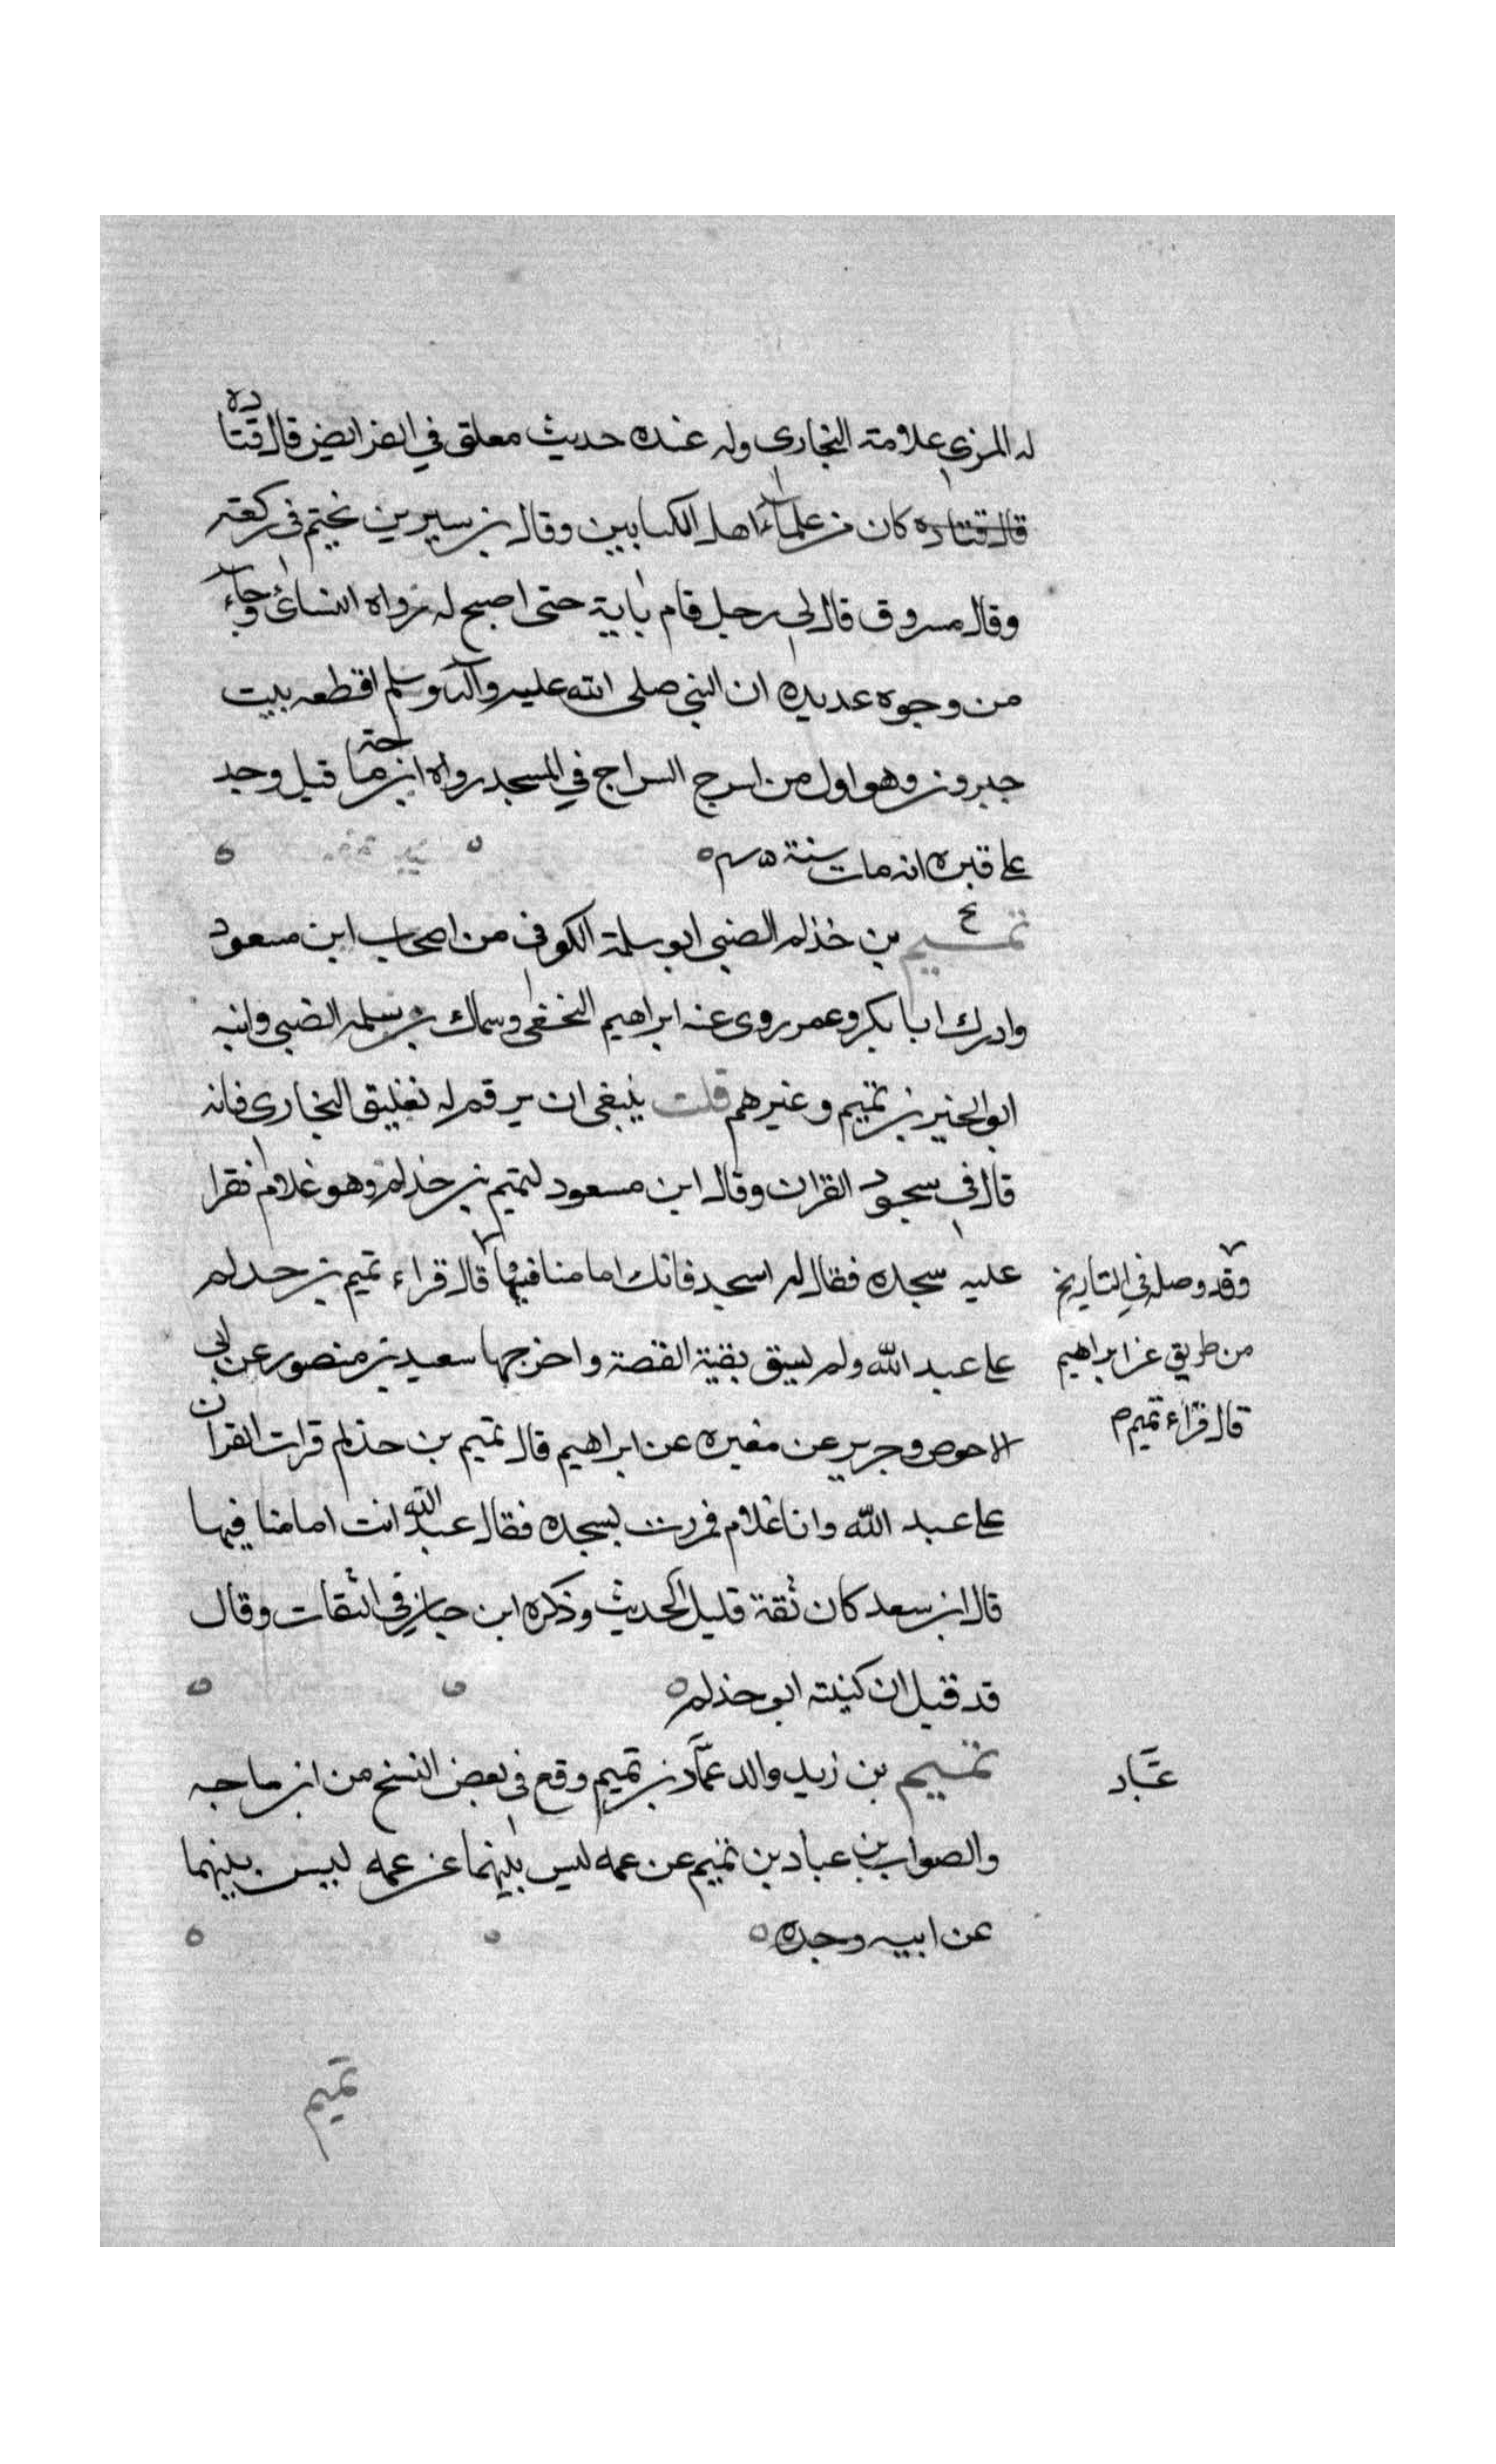 له المزي علامة البخاري وله عنده حديث معلق في الفرايض قال قتاده
قال قتاده كان من علماء اهل الكتابين وقال بن سيرين يختم في ركعة
وقال مسروق قال لي رجل قام باية حتى اصبح له رواه النسائي وجاء
من وجوه عديده ان النبي صلى الله عليه وآله وسلم اقطعه بيت
جبرون وهو اول من اسرج السراج في المسجد رواه ابن ماجه قيل وجد
على قبره انه مات سنة
تميم بن خذلم الضبي ابو سلمة الكوفي من اصحاب ابن مسعود
وادرك ابا بكر وعمر روى عنه ابراهيم النخعي وسماك بن سلمه الضبي وابنه
ابو الخير بن تميم وغيرهم قلت ينبغي ان يرقم له تعليق البخاري فانه
قال في سجود القران وقال ابن مسعود لتميم بن خذلم وهو غلام فقرا
عليه سجده فقال له اسجد فانك امامنا فيها قال قراء تميم بن حدلم
وقد وصله في التاريخ
على عبد الله ولم يسق بقية القصة واخرجها سعيد بن منصور عن ابي
من طريق عن ابراهيم
الاحوص وجرير عن مغيره عن ابراهيم قال تميم بن حذلم قرات القران
قال قراء تميم م
على عبد الله وانا غلام فمررت بسجده فقال عبد الله انت امامنا فيها
قال ابن سعد كان ثقة قليل الحديث وذكره ابن حبان في الثقات وقال
قد قيل ان كنيته ابو حذلم
تميم بن زيد والد عماد بن تميم وقع في بعض النسخ من ابن ماجه
عباد
والصواب عباد بن تميم عن عمه ليس بينهما عن عمه ليس بينهما
عن ابيه وجده
تميم